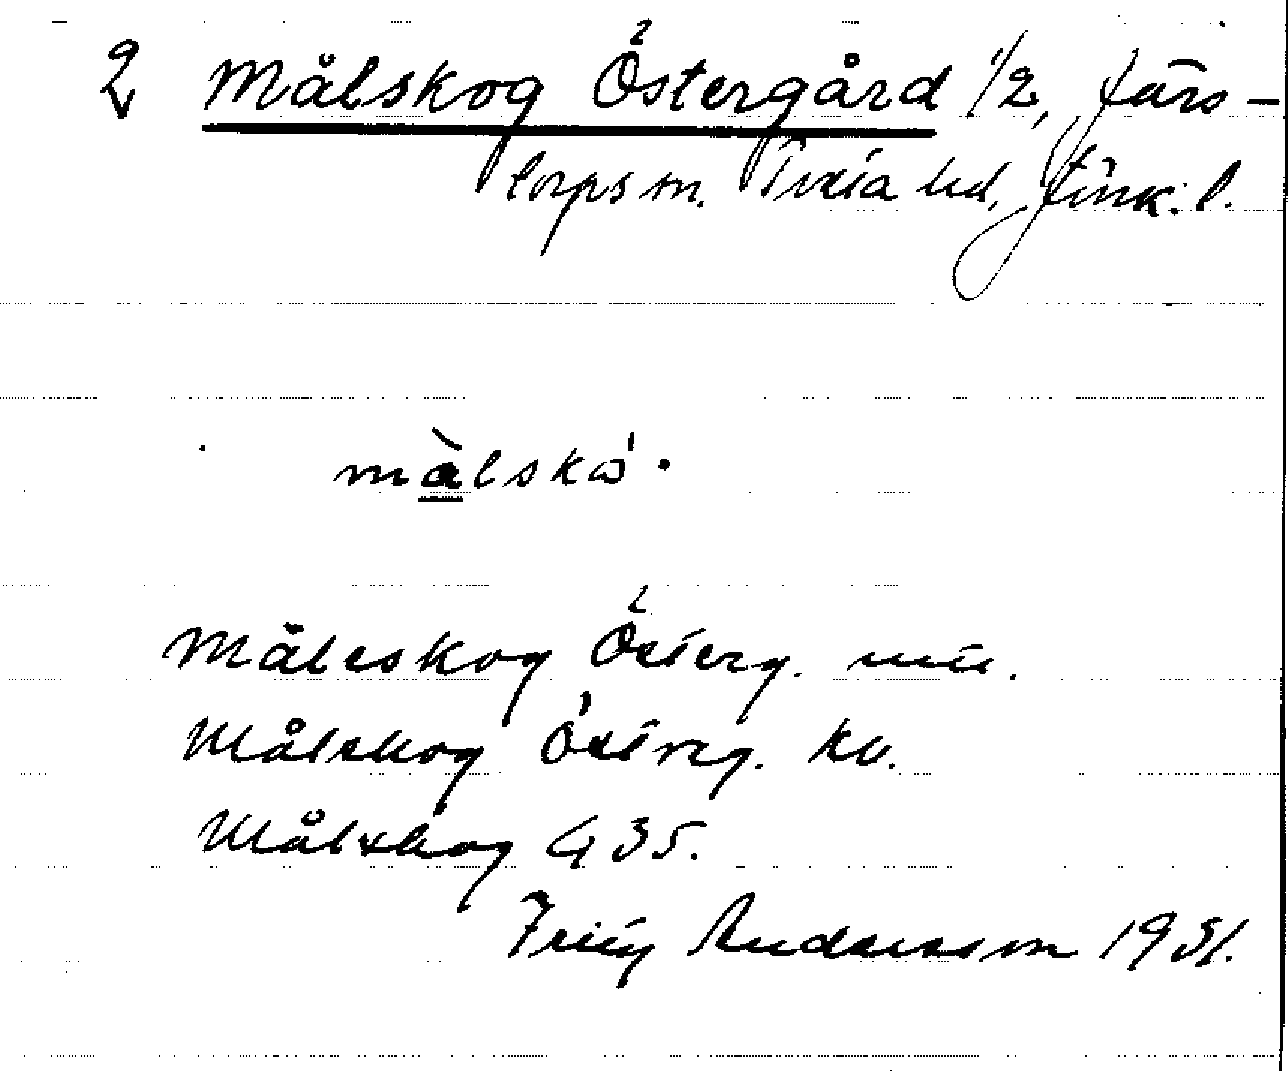 2 Målskog Östergård 1/2, Järs-
torp sn. Tveta hd, Jönk. l.
målskɷ'.
Målsskog Österg. utt.
Målskog Österg. kv.
Målskog G 35.
Fritz Andersson 1931.